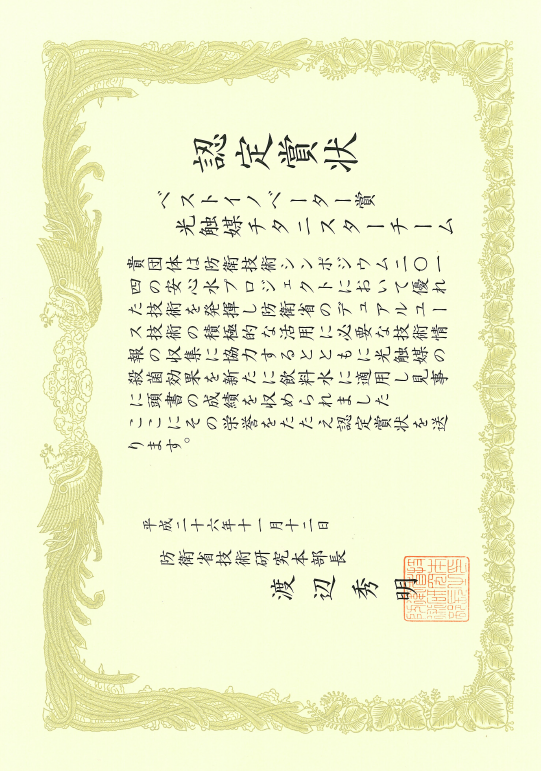 認定賞状
ベストイノベーター賞
光触媒チタニスターチーム
貴団体は防衛技術シンポジウム二〇一
四の安心水プロジェクトにおいて優れ
た技術を発揮し防衛省のデュアルユー
ス技術の積極的な活用に必要な技術情
報の収集に協力するとともに光触媒の
殺菌効果を新たに飲料水に適用し見事
に頭書の成績を収められました
ここにその栄誉をたたえ認定賞状を送
ります。
平成二十六年十一月十二日
防衛省技術研究本部長
渡辺秀明